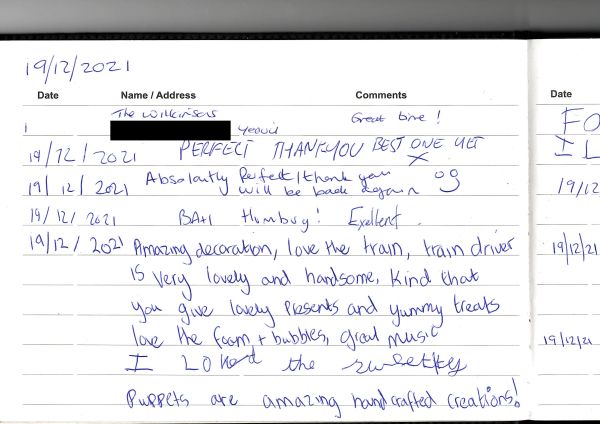 19/12/2021
Date Name / Address Comments
The Wilkinsons Great time !
Yeovil
19/12/2021 PERFECT THANKYOU BEST ONE YET X
19/12/2021 Absolutly Perfect/thank you
will be back again
19/12/2021 BAH Humbug! Exellent.
19/12/2021 Amazing decoration, love the train, train driver
is very lovely and handsome. Kind that
you give lovely presents and yummy treats
love the foam + bubbles, great music
I LOked the sweetky
Puppets are amazing handcrafted creations!
Date
FO
I L
19/12
19/12/21
19/12/21